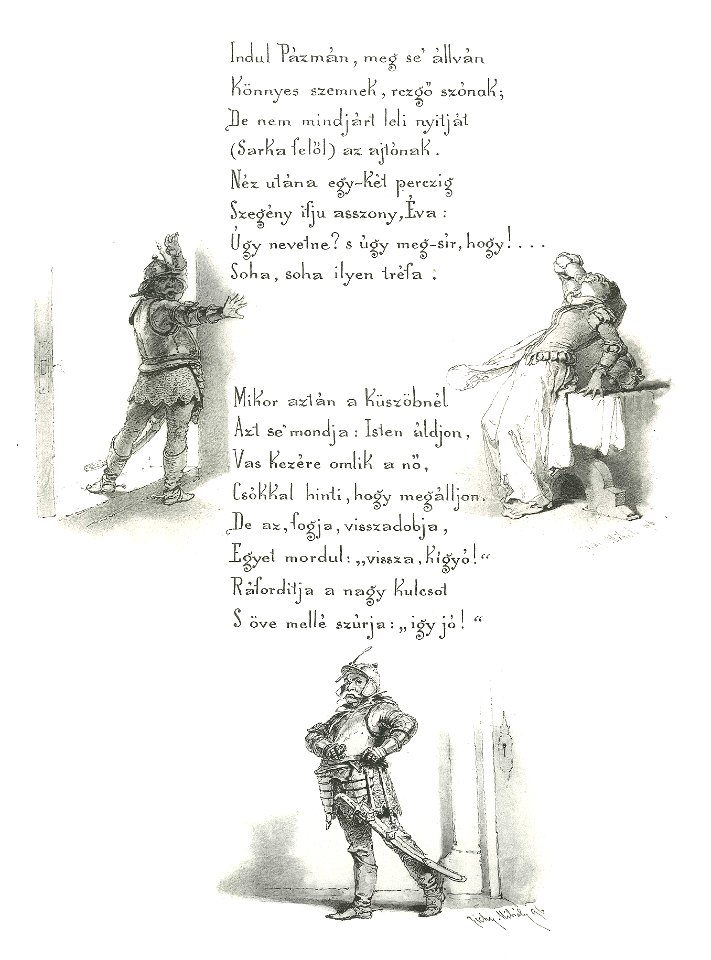 Indul Pázmán, meg se' állván
Könnyes szemnek, rezgő szónak;
De nem mindjárt leli nyitját
(Sarka felől) az ajtónak.
Néz utána egy-két perczig
Szegény ifju asszony, Éva:
Úgy nevetne? s úgy meg-sír, hogy!....
Soha, soha ilyen tréfa:
Mikor aztán a küszöbnél
Azt se' mondja: Isten áldjon,
Vas kezére omlik a nő,
Csókkal hinti, hogy megálljon.
De az, fogja, visszadobja,
Egyet mordul: „vissza, kígyó!“
Ráfordítja a nagy kulcsot
S öve mellé szúrja: „igy jó!“
Zichy Mihály